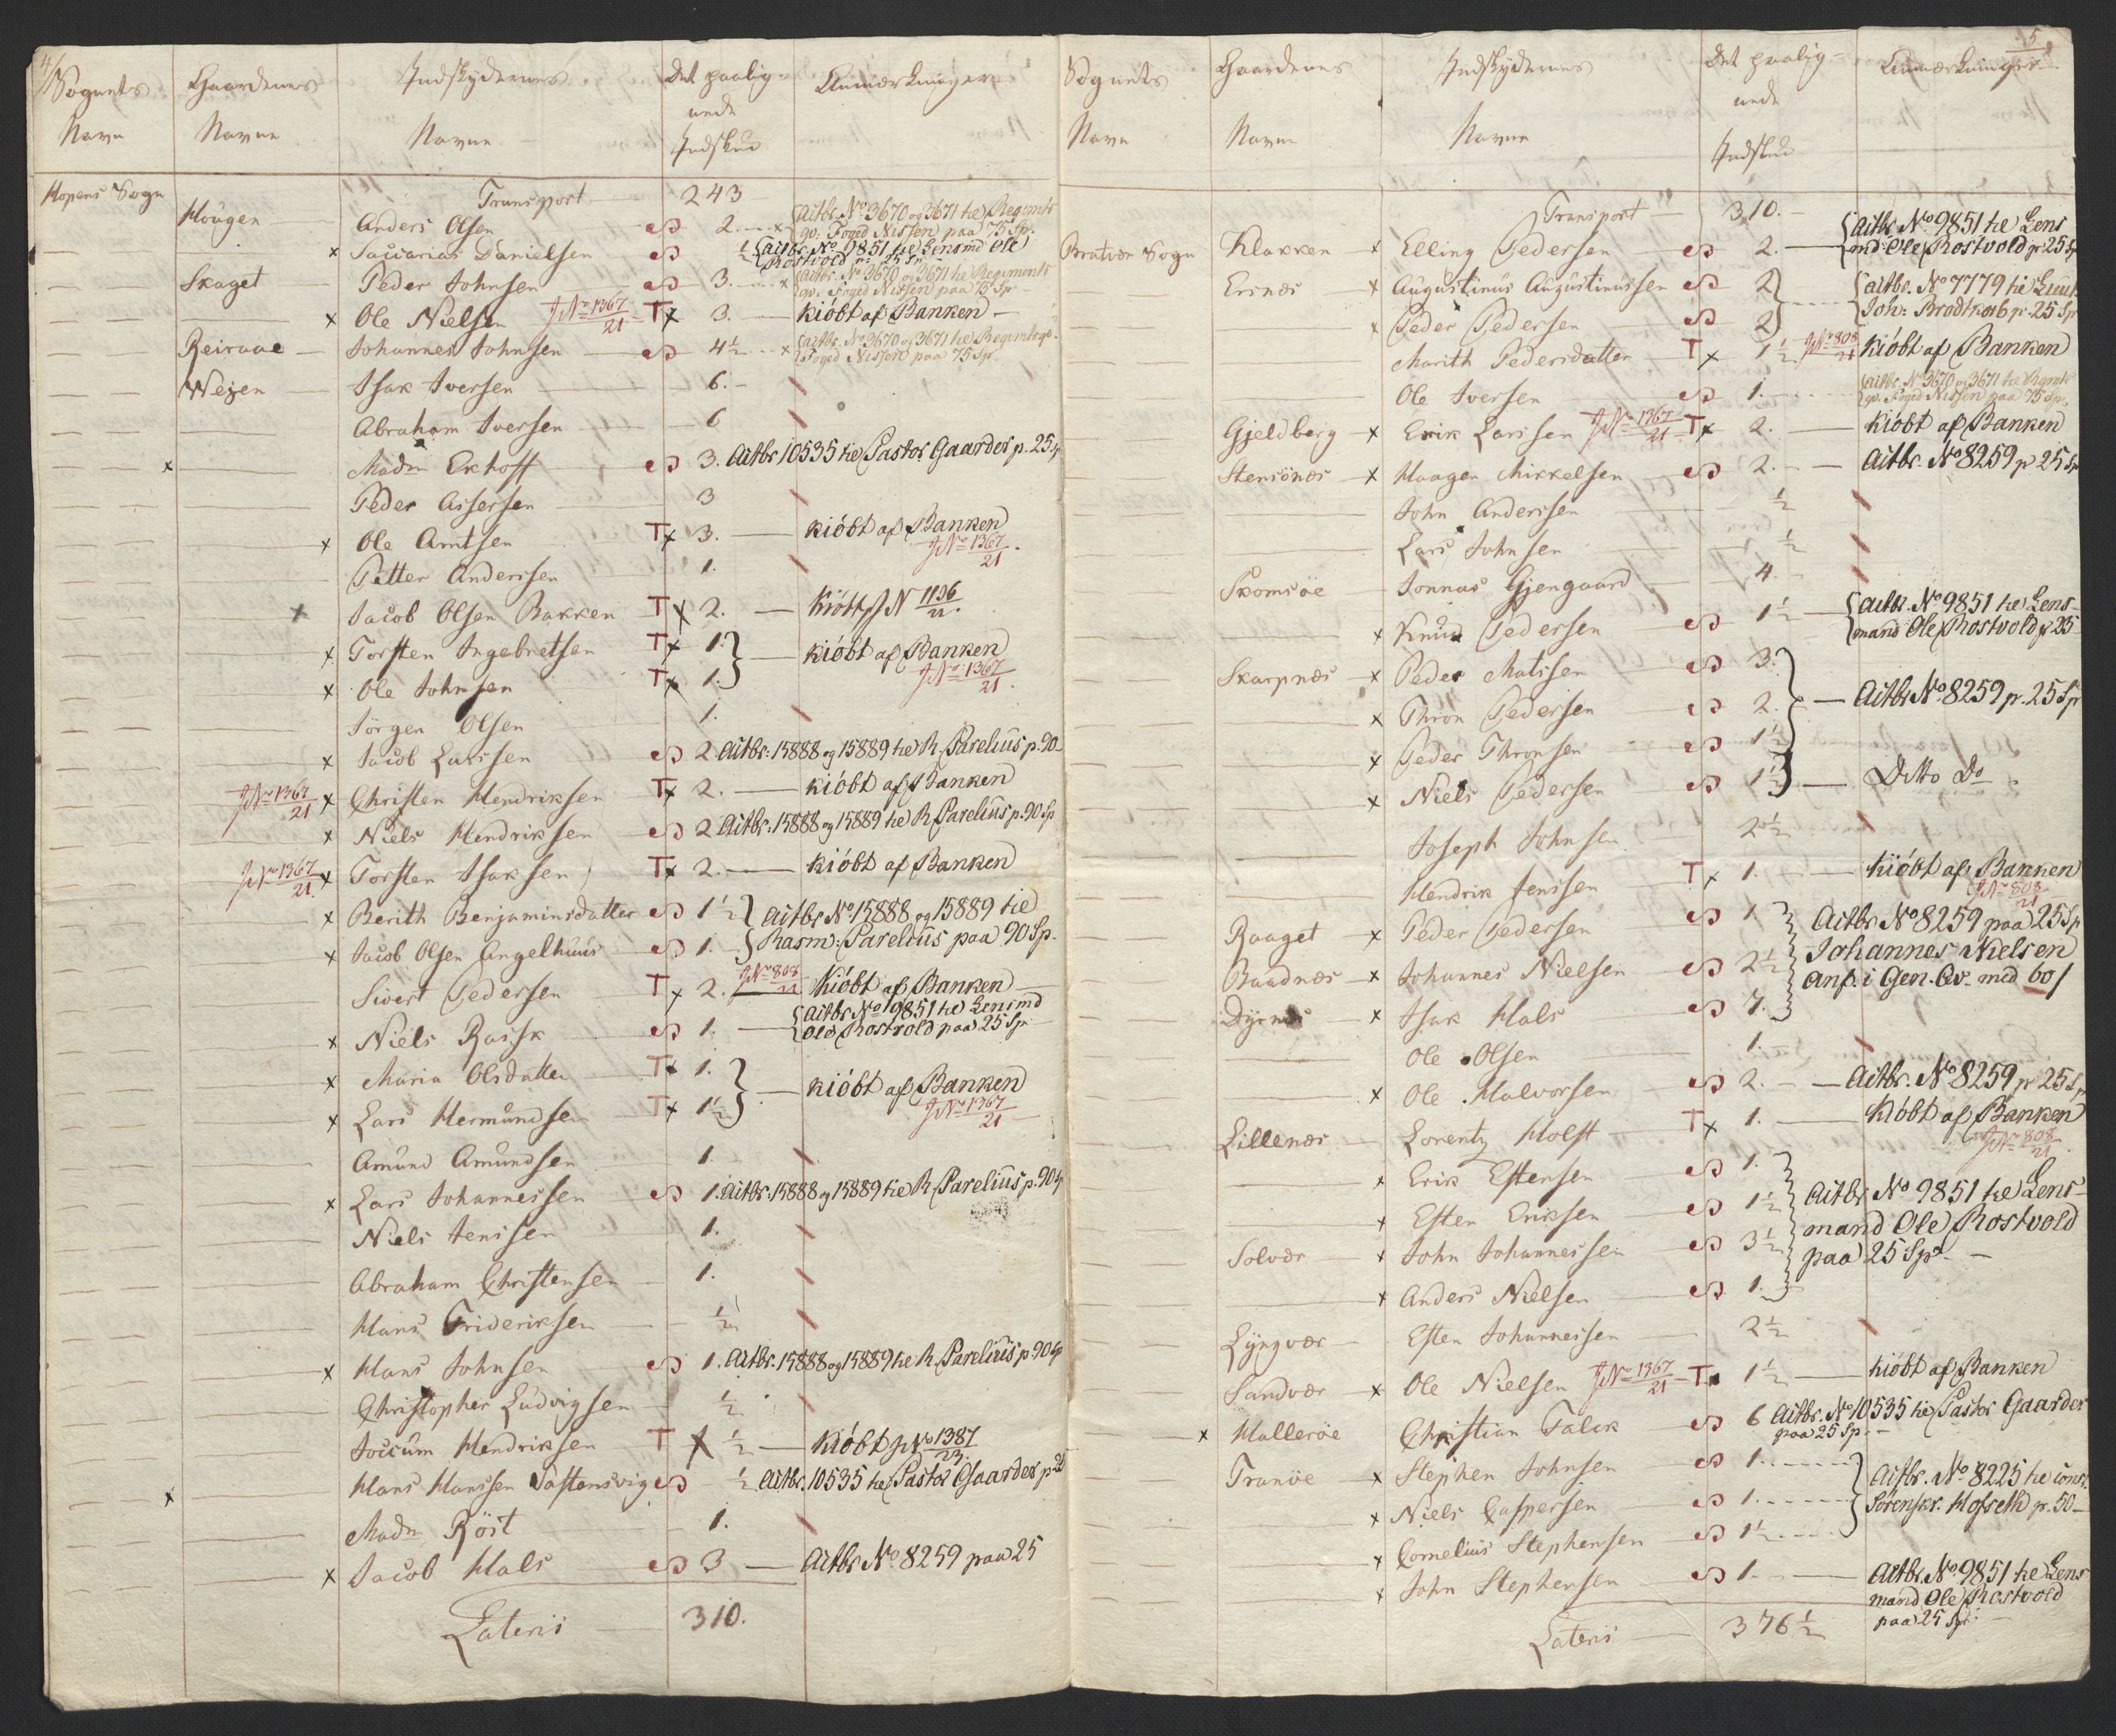 4
Sognets Navn | Gaardenes Navne | Indskydernes Navne | Det paalignede Indskud | Anmærkninger
Hopens Sogn | Transport | 243
Hougen | Anders Olsen | 2. | Actbr. No 3670 og 3671 til Regimts qv. Foged Nissen paa 75 Sp.
x Sacarias Danielsen | 1/2 | Actbr. No 9851 til Lensmd Ole Rostvold p. 25 Sp
Skaget | Peder Johnsen | 3. | Actbr. No 3670 og 3671 til Regiments qv. Foged Nissen paa 75 Sp
x Ole Nielsen JNo 1367/21 | T x 3. | kióbt af Banken
Reiraae | Johannes Johnsen | 4 1/2 | Actbr. No 3670 og 3671 til Regimtsqv. Foged Nissen paa 75 Sp.
Weien | Isak Iversen | 6.
Abraham Iversen | 6
x Madm Ekhoff | 3. | Actbr 10535 til Pastor Gaarder p. 25 Sp
Peder Assersen | 3
x Ole Arntsen | T x 3. | kióbt af Banken JNo 1367/21
Petter Anderssen | 1.
x Jacob Olsen Bakken | T x 2. | Kióbt JN 1196/22.
x Torsten Ingebretsen | T x 1. | kióbt af Banken
x Ole Johnsen | T x 1. | JNo 1367/21.
Jörgen Olsen | 1.
x Jacob Larssen | 2 | Actbr. 15888 og 15889 til R Parelius p. 90
JNo 1367/21 x Christen Hendriksen | T x 2. | kióbt af Banken
x Niels Hendriksen | 2 | Actbr. 15888 og 15889 til R Parelius p. 90 Sp
JNo 1367/21 x Torsten Isaksen | T x 2. | kióbt af Banken
x Berith Benjaminsdatter | 1 1/2 | Actbr No 15888 og 15889 til
x Jacob Olsen Angelhuus | 1. | Rasm: Parelius paa 90 Sp.
Sivert Pedersen | T x 2. | JNo 808/21 Kióbt af Banken
x Niels Rask | 1. | Actbr No 9851 til Lensmd Ole Rostvold paa 25 Sp
x Maria Olsdatter | T x 1. | kióbt af Banken
x Lars Hermundsen | T x 1 1/2 | JNo 1367/21
Amund Amundsen | 1.
x Lars Johannessen | 1. | Actbr. 15888 og 15889 til R Parelius p. 90 Sp
Niels Jenssen | 1.
Abraham Christensen | 1.
Hans Frideriksen | 1/2
x Hans Johnsen | 1. | Actbr. 15888 og 15889 til R. Parelius p. 90 Sp
Christopher Ludvigsen | 1/2
Joccum Hendriksen | T x 1/2 | Kióbt JNo 1387/23.
x Hans Hanssen Sastensvig | 1/2 | Actbr. 10535 til Pastor Gaarder p 25
Madm Röst | 1.
x Jacob Hals | 3 | Actbr No 8259 paa 25
Lateris | 310.
5
Sognets Navn | Gaardenes Navne | Indskydernes Navne | Det paalignede Indskud | Anmærkninger
Transport | 310.
Bratvær Sogn | Klakken | x Elling Pedersen | 2. | Actbr. No 9851 til Lensmd Ole Rostvold p 25 Sp
Ersnæs | x Augustinus Augustinussen | 2 | Actbr. No 7779 til Lieut.
x Peder Pedersen | 2 | Joh: Brodtkorb p. 25 Sp
Marith Pedersdatter | T x 1 1/2 | JNo 808/21 kióbt af Banken
Ole Iversen | 1. | Actbr. No 3670 og 3671 til Regmts qv. Foged Nissen paa 75 Sp.
Gjeldberg | x Erik Larssen JNo 1367/21 | T x 2. | kióbt af Banken
Stensönæs | x Haagen Mikkelsen | 2. | Actbr. No 8259 p 25 Sp
John Anderssen | 1/2
Lars Johnsen | 1/2
Skomsöe | Jonnas Gjengaard | 4.
x Knud Pedersen | 1 1/2 | Actbr. No 9851 til Lensmand Ole Rostvold p 25
Skarpnæs | x Peder Matssen | 3.
x Thron Pedersen | 2. | Actbr No 8259 p. 25 Sp
x Peder Thronsen | 1 1/2
x Niels Pedersen | 1 1/2 | Ditto Do
Joseph Johnsen | 2 1/2
Hendrik Jenssen | T x 1. | kióbt af Banken JNo 808/21
Raaget | x Peder Pedersen | 1 | Actbr No 8259 paa 25 Sp
Baadnæs | x Johannes Nielsen | 2 1/2 | Johannes Nielsen anf. i Gen. Qv. med 60/
Dyrnes | x Isak Hals | 7.
Ole Olsen | 1.
x Ole Halvorsen | 2. | Actbr. No 8259 p 25 Sp
Lillenæs | Lorentz Holst | T x 1. | Kióbt af Banken JNo 808/21
x Erik Estensen | 1. | Actbr No 9851 til Lens-
x Esten Eriksen | 1 1/2 | mand Ole Rostvold
Solvær | x John Johannessen | 3 1/2 | paa 25 Sp
x Anders Nielsen | 1.
Lyngvær | Esten Johannessen | 2 1/2
Sandvær | x Ole Nielsen JNo 1367/21 | T x 1 1/2 | kióbt af Banken
x Halleröe | Christian Falck | 6 | Actbr. No 10535 til Pastor Gaarder paa 25 Sp.
Tranöe | x Stephen Johnsen | 1. | Actbr. No 8225 til const.
x Niels Caspersen | 1. | Sorenskr. Hofseth p. 50
x Cornelius Stephensen | 1 1/2
x John Stephensen | 1. | Actbr. No 9851 til Lensmand Ole Rostvold paa 25 Sp.
Lateris | 376 1/2